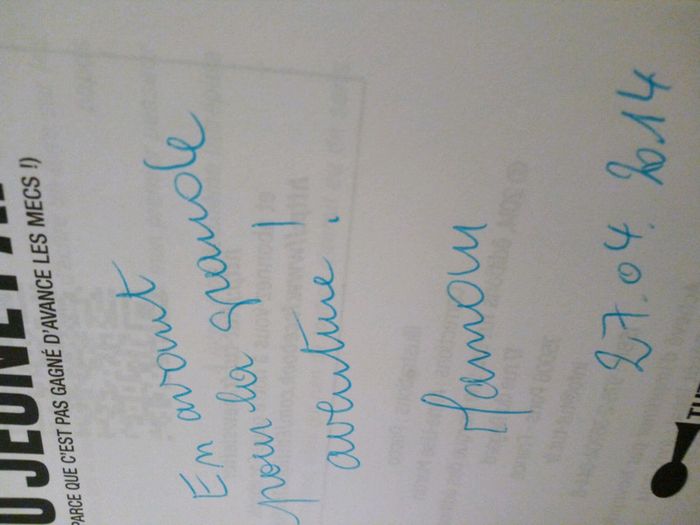 JEUNE
PARCE QUE C'EST PAS GAGNÉ D'AVANCE LES MECS !)
En avant
pour la grande
aventure !
Mamou
27.04.2014